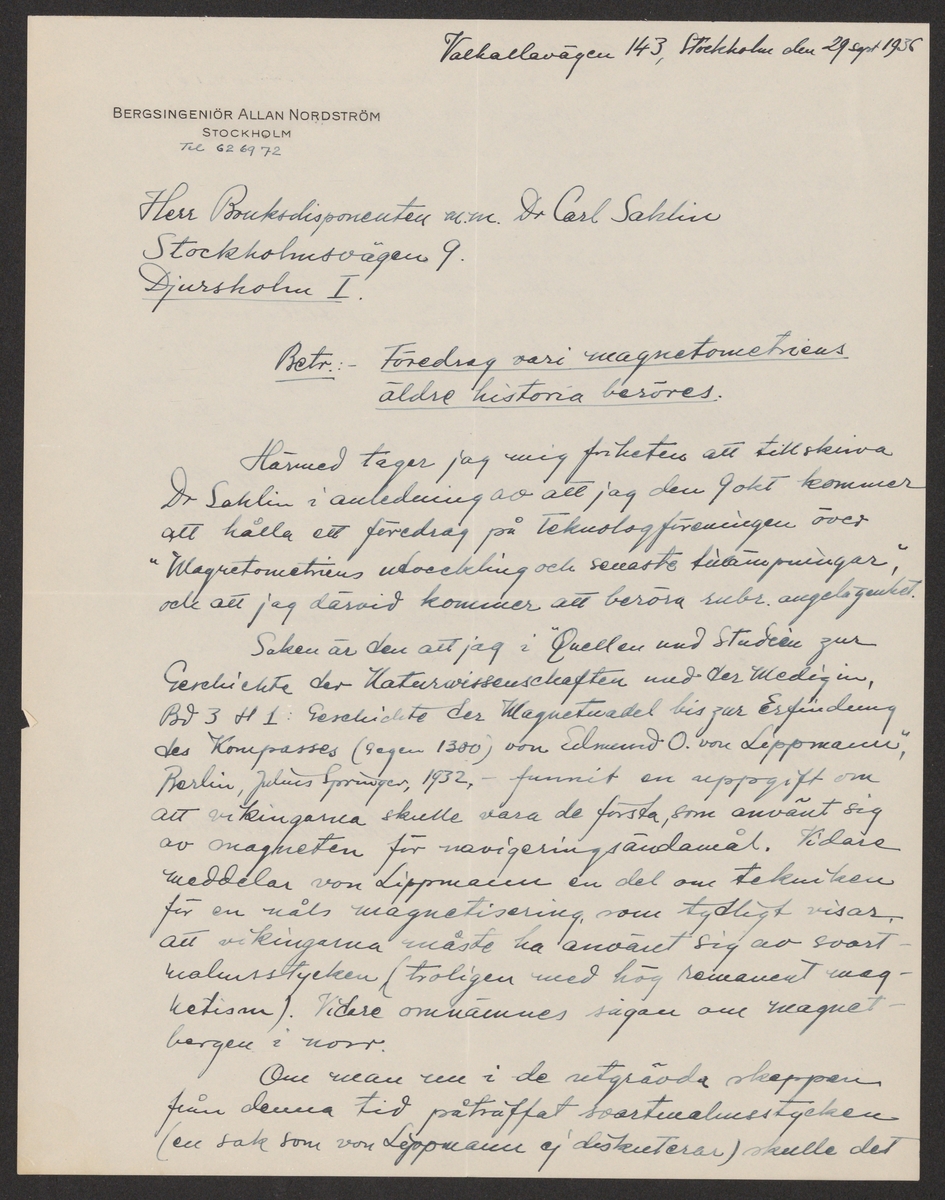 Valhallavägen 143, Stockholm den 29 sept 1936
BERGSINGENIÖR ALLAN NORDSTRÖM
STOCKHOLM
Tel 62 69 72
Herr Bruksdisponenten m.m. Dr Carl Sahlin
Stockholmsvägen 9.
Djursholm I.
Betr.:- Föredrag vari magnetometriens
äldre historia beröres.
Härmed tager jag mig friheten att tillskriva
Dr Sahlin i anledning av att jag den 9 okt kommer
att hålla ett föredrag på Teknologföreningen över
"Magnetometriens utveckling och senaste tillämpningar",
och att jag därvid kommer att beröra rubr. angelägenhet.
Saken är den att jag i "Quellen und Studien zur
Geschichte der Naturwissenschaften und der Medizin,
Bd 3 H 1: Geschichte der Magnetnadel bis zur Erfindung
des Kompasses (gegen 1300) von Edmund O. von Lippmann",
Berlin, Julius Springer, 1932, - funnit en uppgift om
att vikingarna skulle vara de första, som använt sig
av magneten för navigeringsändamål. Vidare
meddelar von Lippmann en del om tekniken
för en nåls magnetisering, som tydligt visar,
att vikingarna måste ha använt sig av svart-
malmsstycken (troligen med hög remanent mag-
netism). Vidare omnämnes sagan om magnet-
bergen i norr.
Om man nu i de utgrävda skeppen
från denna tid påträffat svartmalmsstycken
(en sak som von Lippmann ej diskuterar) skulle det